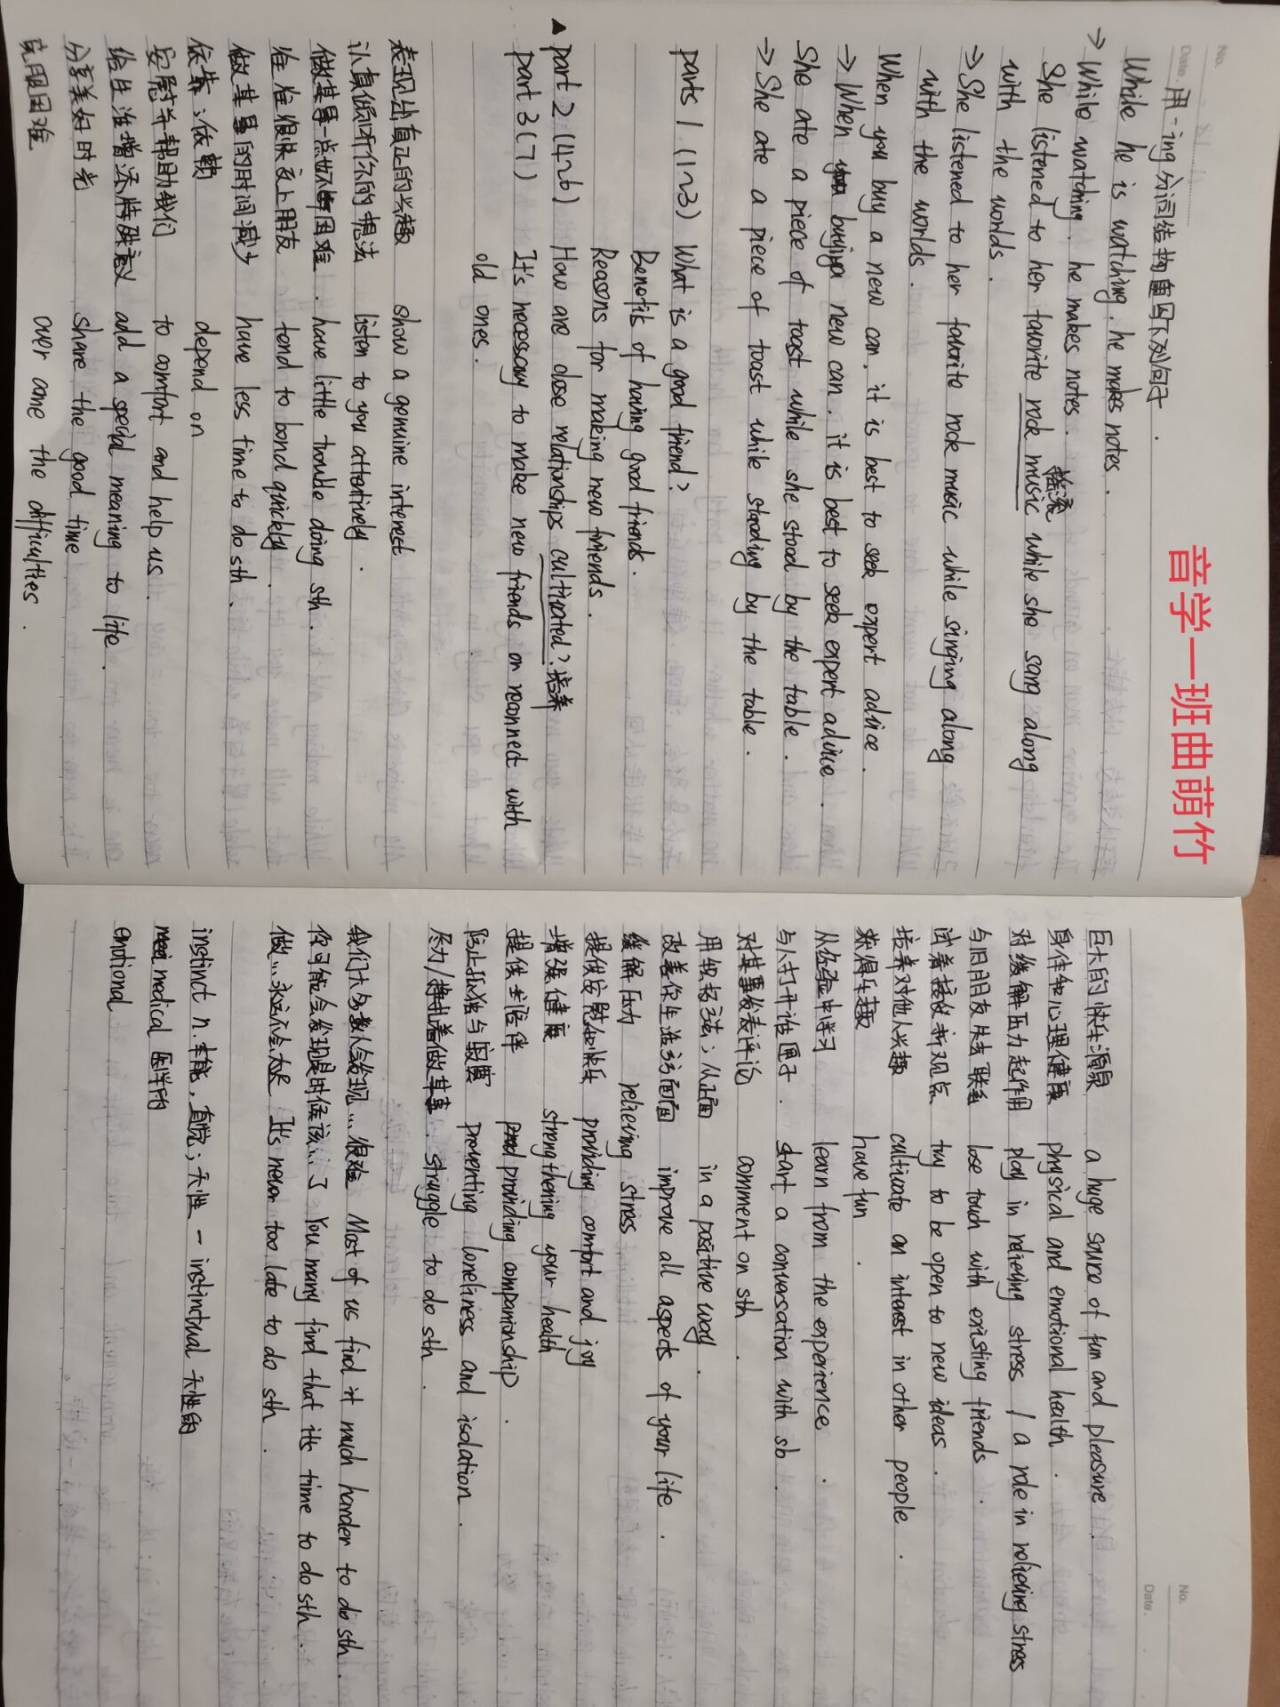 音学一班曲萌竹
No.
Date.
用-ing分词结构重写下列句子.
While he is watching, he makes notes.
→ While watching, he makes notes.
摇滚
She listened to her favorite rock music while she sang along
with the worlds.
→ She listened to her favorite rock music while singing along
with the worlds.
When you buy a new can, it is best to seek expert advice.
→ When buying a new can, it is best to seek expert advice.
She ate a piece of toast while she stood by the table.
→ She ate a piece of toast while standing by the table.
parts 1 (1~3) What is a good friend?
Benefits of having good friends.
Reasons for making new friends.
▲ part 2 (4~6) How are close relationships cultivated? 培养
part 3 (7) It's necessary to make new friends or reconnect with
old ones.
表现出真正的兴趣 show a genuine interest
认真倾听你的想法 listen to you attentively.
做某事一点也不困难. have little trouble doing sth.
往往很快交上朋友 tend to bond quickly.
做某事的时间减少 have less time to do sth.
依靠;依赖 depend on
安慰并帮助我们 to comfort and help us.
给生活增添特殊意义 add a special meaning to life.
分享美好时光 share the good time
克服困难 over come the difficulties.
No.
Date.
巨大的快乐源泉 a huge source of fun and pleasure.
身体和心理健康 physical and emotional health.
对缓解压力起作用 play in relieving stress / a role in relieving stress
与旧朋友失去联系 lose touch with existing friends.
试着接收新观点 try to be open to new ideas.
培养对他人兴趣 cultivate an interest in other people.
获得乐趣 have fun.
从经验中学习 learn from the experience.
与人打开话匣子. start a conversation with sb.
对某事发表评论 comment on sth.
用积极方法;从正面 in a positive way.
改善你生活方面面 improve all aspects of your life.
缓解压力 relieving stress
提供安慰和快乐 providing comfort and joy
增强健康 strengthening your health
提供生活伴 providing companionship.
防止孤独与寂寞 preventing loneliness and isolation.
尽力/挣扎着做某事. struggle to do sth.
我们大多数人会发现...很难 Most of us find it much harder to do sth.
你可能会发现是时候该...了 You many find that it's time to do sth.
做...永远不会太晚 It's never too late to do sth.
instinct n.本能,直觉;天性 - instinctual 天性的
medical 医学的
emotional